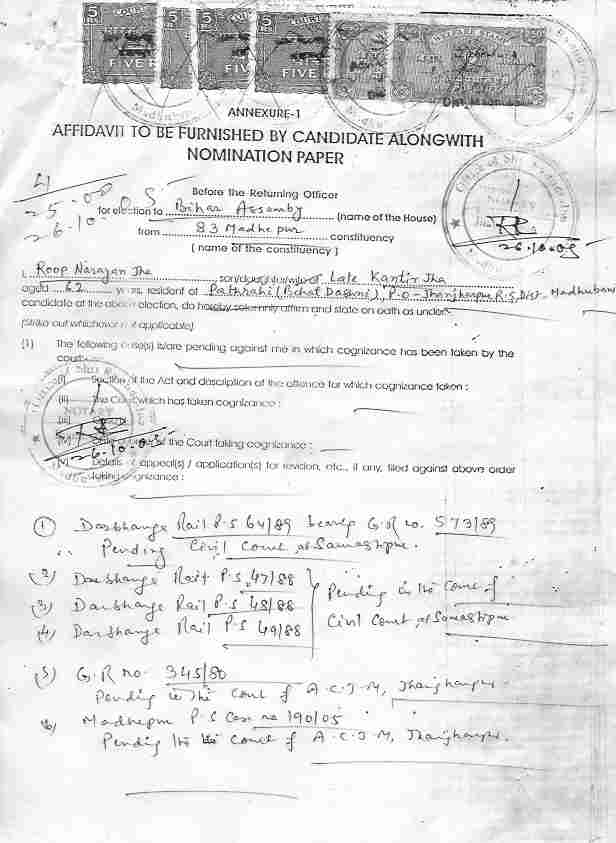 5 COURT 5 5 5 COURT
RS.
FIVE R FIVE FIVE R
ANNEXURE-1
AFFIDAVIT TO BE FURNISHED BY CANDIDATE ALONGWITH
NOMINATION PAPER
Before the Returning Officer
for election to Bihar Assamby (name of the House)
from 83 Madhepur constituency
( name of the constituency )
26.10.05
I, Roop Narayan Jha son/daughter/wife of Late Kantir Jha
aged 62 years, resident of Pathrahi (Bihat Dashni), P.O- Jhanjharpur R.S, Dist- Madhubani
candidate at the above election, do hereby solemnly affirm and state on oath as under:
(Strike out whichever not applicable)
(1) The following case(s) is/are pending against me in which cognizance has been taken by the
court:
(i) Section of the Act and description of the offence for which cognizance taken :
(ii) The Court which has taken cognizance :
NOTARY
of the Court taking cognizance :
26.10.05
(v) Details of appeal(s) / application(s) for revision, etc., if any, filed against above order
taking cognizance :
(1) Darbhanga Rail P.S 64/89 G.R no. 573/89
Pending Civil Court at Samastipur.
(2) Darbhanga Rail P.S 47/88
(3) Darbhanga Rail P.S 48/88
(4) Darbhanga Rail P.S 49/88
Pending in the Court of
Civil Court at Samastipur
(5) G.R no. 345/80
Pending in the Court of A.C.J.M, Jhanjharpur
(6) Madhepur P.S Case no 190/05
Pending in the Court of A.C.J.M, Jhanjharpur.